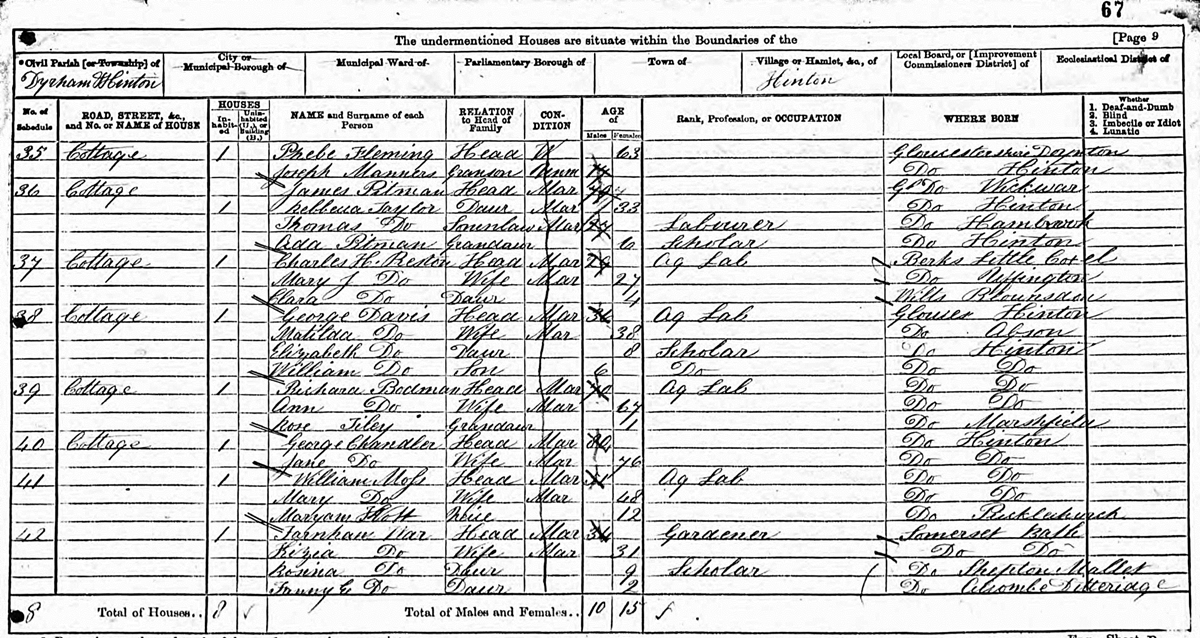 67
The undermentioned Houses are situate within the Boundaries of the [Page 9
Civil Parish [or Township] of City or Municipal Borough of Municipal Ward of Parliamentary Borough of Town of Village or Hamlet, &c., of Local Board, or [Improvement Commissioners District] of Ecclesiastical District of
Dyrham & Hinton Hinton
No. of Schedule ROAD, STREET, &c., and No. or NAME of HOUSE HOUSES Inhabited Uninhabited (U.), or Building (B.) NAME and Surname of each Person RELATION to Head of Family CONDITION AGE of Males Females Rank, Profession, or OCCUPATION WHERE BORN Whether 1. Deaf-and-Dumb 2. Blind 3. Imbecile or Idiot 4. Lunatic
35 Cottage 1 Phebe Fleming Head W 63 Gloucestershire Doynton
Joseph Manners Granson Unm Do Hinton
36 Cottage 1 James Pitman Head Mar Do Wickwar
Rebbecca Taylor Daur Mar 33 Do Hinton
Thomas Do Soninlaw Mar Labourer Do
Ada Pitman Grandaur 6 Scholar Do Hinton
37 Cottage 1 Charles H. Head Mar 29 Ag Lab Berks Little
Mary J Do Wife Mar 27 Do Uffington
Clara Do Daur 4 Wilts Blounsdon
38 Cottage 1 George Davis Head Mar Ag Lab Glouser Hinton
Matilda Do Wife Mar 38 Do Abson
Elizabeth Do Daur 8 Scholar Do Hinton
William Do Son 6 Do Do Do
39 Cottage 1 Richard Bodman Head Mar 70 Ag Lab Do Do
Ann Do Wife Mar 67 Do Do
Rose Tiley Grandaur 1 Do Marshfield
40 Cottage 1 George Chandler Head Mar 80 Do Hinton
Jane Do Wife Mar 76 Do Do
41 1 William Moss Head Mar Ag Lab Do Do
Mary Do Wife Mar 48 Do Do
Maryann Neice 12 Do Pucklechurch
42 1 Farnham Head Mar 34 Gardener Somerset Bath
Kizia Do Wife Mar 31 Do Do
Rosina Do Daur 9 Scholar Do Shepton Mallet
Fanny E Do Daur 2 Do
8 Total of Houses.. 8 Total of Males and Females.. 10 15